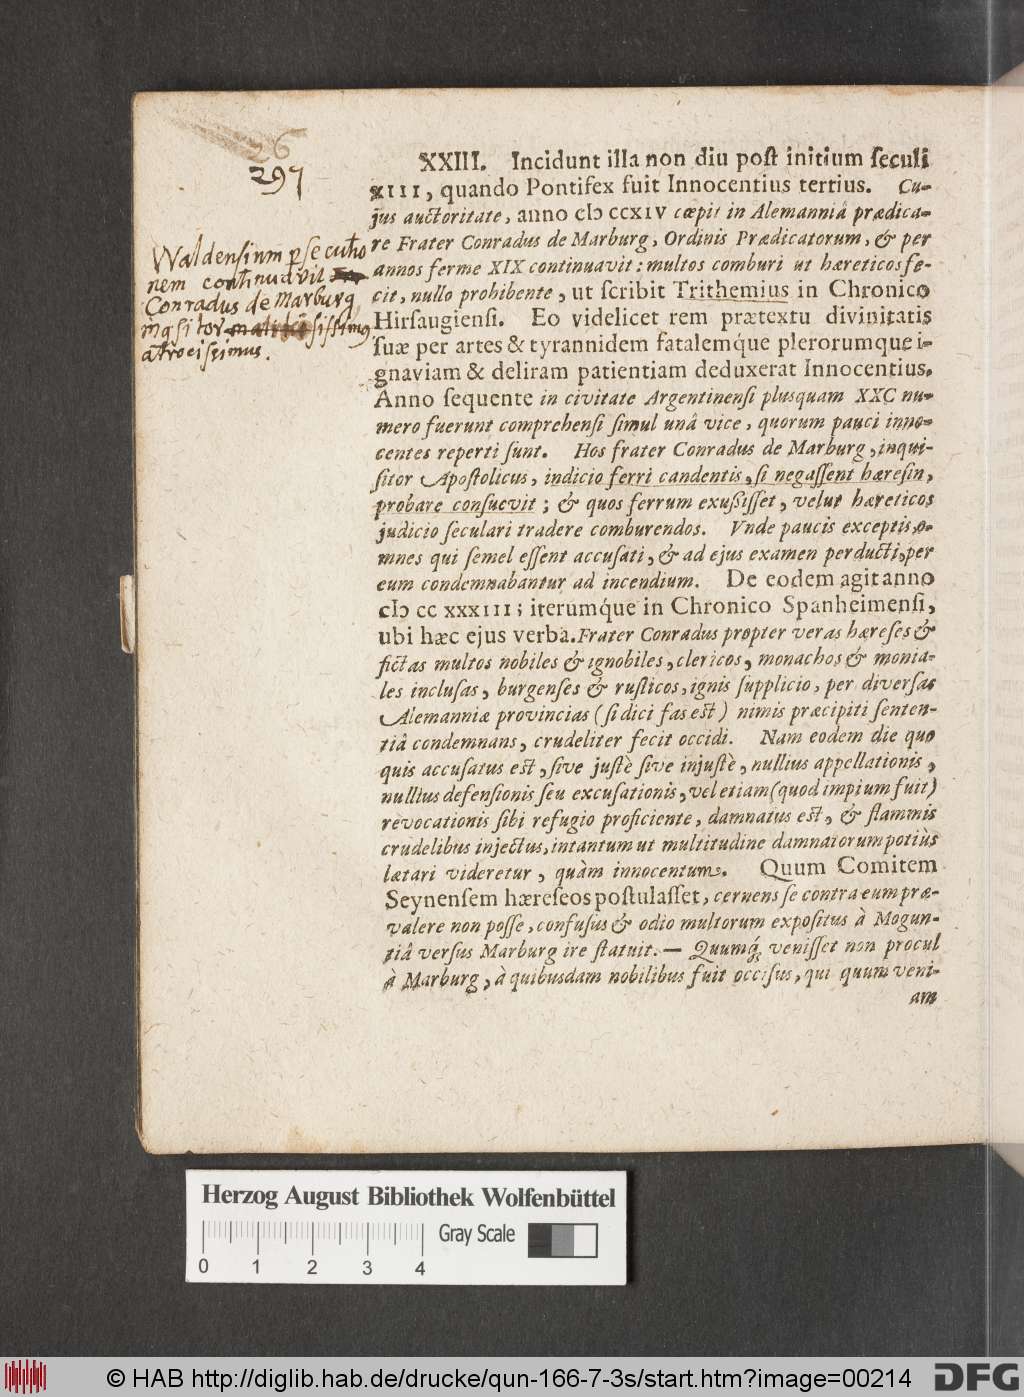 26
297
Waldensium persecutio
nem continuavit
Conradus de Marburg
inqsitor sissimus
atrocissimus.
XXIII. Incidunt illa non diu poſt initium ſeculi
XIII, quando Pontifex fuit Innocentius tertius. Cu-
jus auctoritate, anno cIↄ ccXIV cœpit in Alemanniâ prædica-
re Frater Conradus de Marburg, Ordinis Prædicatorum, & per
annos ferme XIX continuavit: multos comburi ut hæreticos fe-
cit, nullo prohibente, ut ſcribit Trithemius in Chronico
Hirſaugienſi. Eo videlicet rem prætextu divinitatis
ſuæ per artes & tyrannidem fatalemq́ue plerorumque i-
gnaviam & deliram patientiam deduxerat Innocentius.
Anno ſequente in civitate Argentinenſi pluſquam XXC nu-
mero fuerunt comprehenſi ſimul unâ vice, quorum pauci inno-
centes reperti ſunt. Hos frater Conradus de Marburg, inqui-
ſitor Apoſtolicus, indicio ferri candentis, ſi negaſſent hæreſin,
probare conſuevit; & quos ferrum exuſſiſſet, velut hæreticos
judicio ſeculari tradere comburendos. Vnde paucis exceptis, o-
mnes qui ſemel eſſent accuſati, & ad ejus examen perducti, per
eum condemnabantur ad incendium. De eodem agit anno
cIↄ cc xxxIII; iterumq́ue in Chronico Spanheimenſi,
ubi hæc ejus verba. Frater Conradus propter veras hæreſes &
fictas multos nobiles & ignobiles, clericos, monachos & monia-
les incluſas, burgenſes & ruſticos, ignis ſupplicio, per diverſas
Alemanniæ provincias (ſi dici fas eſt) nimis præcipiti ſenten-
tiâ condemnans, crudeliter fecit occidi. Nam eodem die quo
quis accuſatus eſt, ſive juſtè ſive injuſtè, nullius appellationis,
nullius defenſionis ſeu excuſationis, vel etiam (quod impium fuit)
revocationis ſibi refugio proficiente, damnatus eſt, & flammis
crudelibus injectus, intantum ut multitudine damnatorum potiùs
lætari videretur, quàm innocentum. Quum Comitem
Seynenſem hæreſeos poſtulaſſet, cernens ſe contra eum præ-
valere non poſſe, confuſus & odio multorum expoſitus à Mogun-
tiâ verſus Marburg ire ſtatuit. — Quumq́; veniſſet non procul
à Marburg, à quibuſdam nobilibus fuit occiſus, qui quum veni-
am
Herzog August Bibliothek Wolfenbüttel
Gray Scale
0 1 2 3 4
© HAB http://diglib.hab.de/drucke/qun-166-7-3s/start.htm?image=00214
DFG